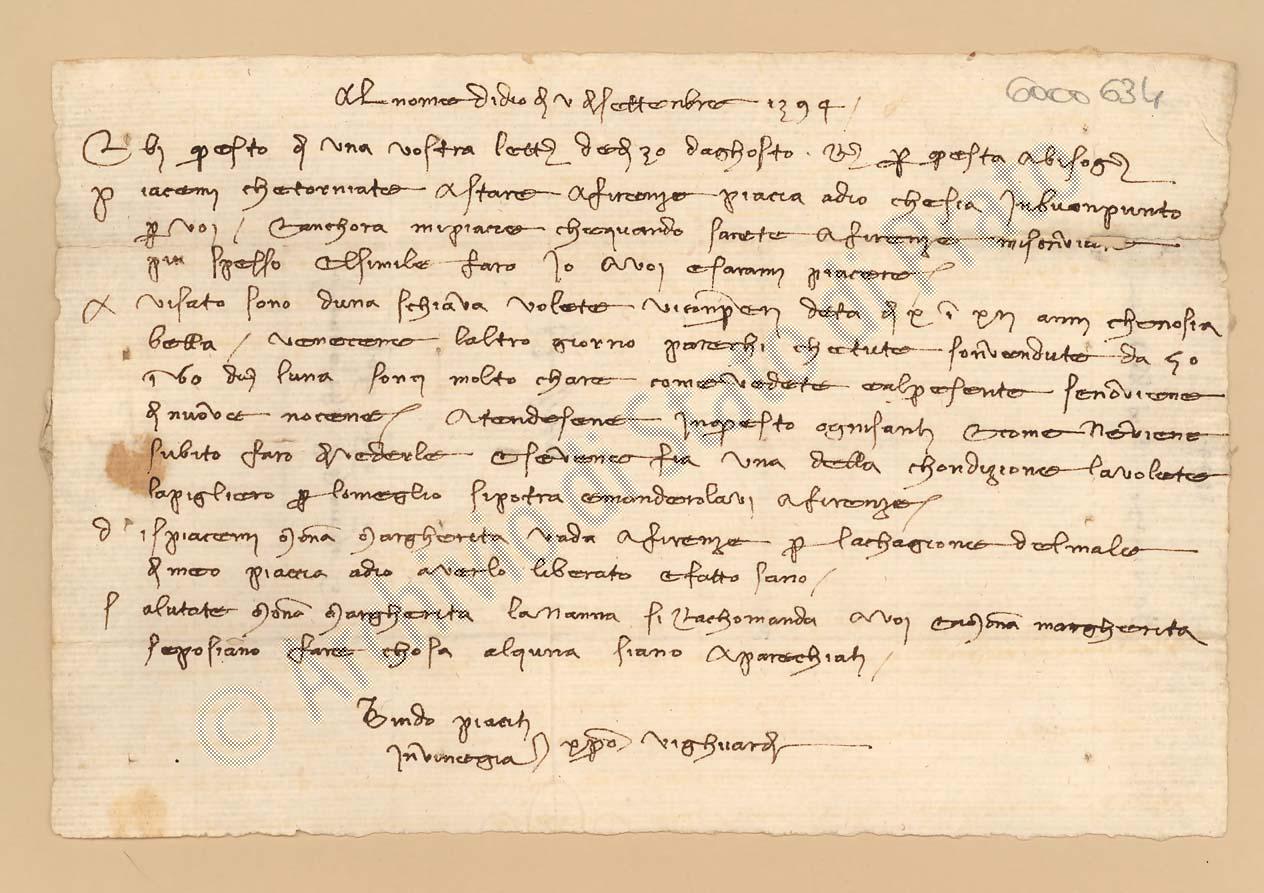 Al nome di dio dì v di settenbre 1394
6000 634
Ebi questo dì una vostra lettera de dì 30 daghosto. Rispondo per questa a bisogni
piacemi che torniate a stare a firenze piacia a dio che sia in buon punto
per voi / E anchora mi piacie che quando sarete a firenze mi scriviate
più spesso el simile farò io a voi e sarami piacere /
Avisato sono duna schiava volete vi conperi detà di x in xii anni che no sia
bella / venecene laltro giorno parechi che tute son vendute da 50
in 60 duc. luna sonci molto chare come vedete e al presente se ne viene
di nuove nocene / Atendesene in questo ognisanti E come ne viene
subito farò di vederle E se vene fia una della chondizione la volete
la piglierò per lo meglio si potrà e manderolavi a firenze /
dispiacemi Mona Margherita vada a firenze per la chagione del male
di meo piaccia a dio averlo liberato e fatto sano /
salutate Mona Margherita la Nanna si rachomanda a voi e a Mona margherita
se posiano fare chosa alquna siano aparechiati /
Bindo piaciti
in vinegia / Cristo vi ghuardi
© Archivio di Stato di Prato